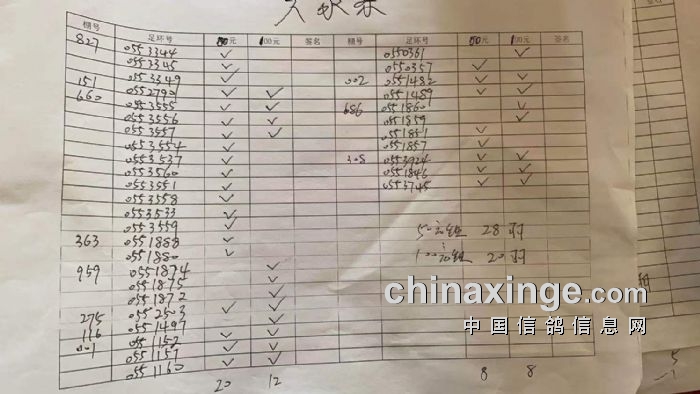 棚号 足环号 50元 100元 签名 棚号 足环号 50元 100元 签名
827 0553344 ✓ 0550361 ✓
0553345 ✓ 0550357 ✓
151 0553349 ✓ 002 0551482 ✓ ✓
660 0552790 ✓ ✓ 0551489 ✓ ✓
0553555 ✓ ✓ 686 0551860 ✓
0553556 ✓ ✓ 0551859 ✓
0553557 ✓ ✓ 0551851 ✓
0553554 ✓ 0551857 ✓
0553537 ✓ 308 0553924 ✓ ✓
0553560 ✓ 0551846 ✓ ✓
0553551 ✓ 0553745 ✓ ✓
0553558 ✓
0553533 ✓
0553559 ✓ 50元组 28羽
363 0551888 ✓
0551880 ✓ 100元组 20羽
959 0551874 ✓
0551875 ✓
0551872 ✓
275 0552503 ✓ ✓
116 0551497 ✓
001 0551152 ✓ ✓
0551157 ✓ ✓
0551160 ✓ ✓
20 12 8 8
chinaxinge.com
中国信鸽信息网